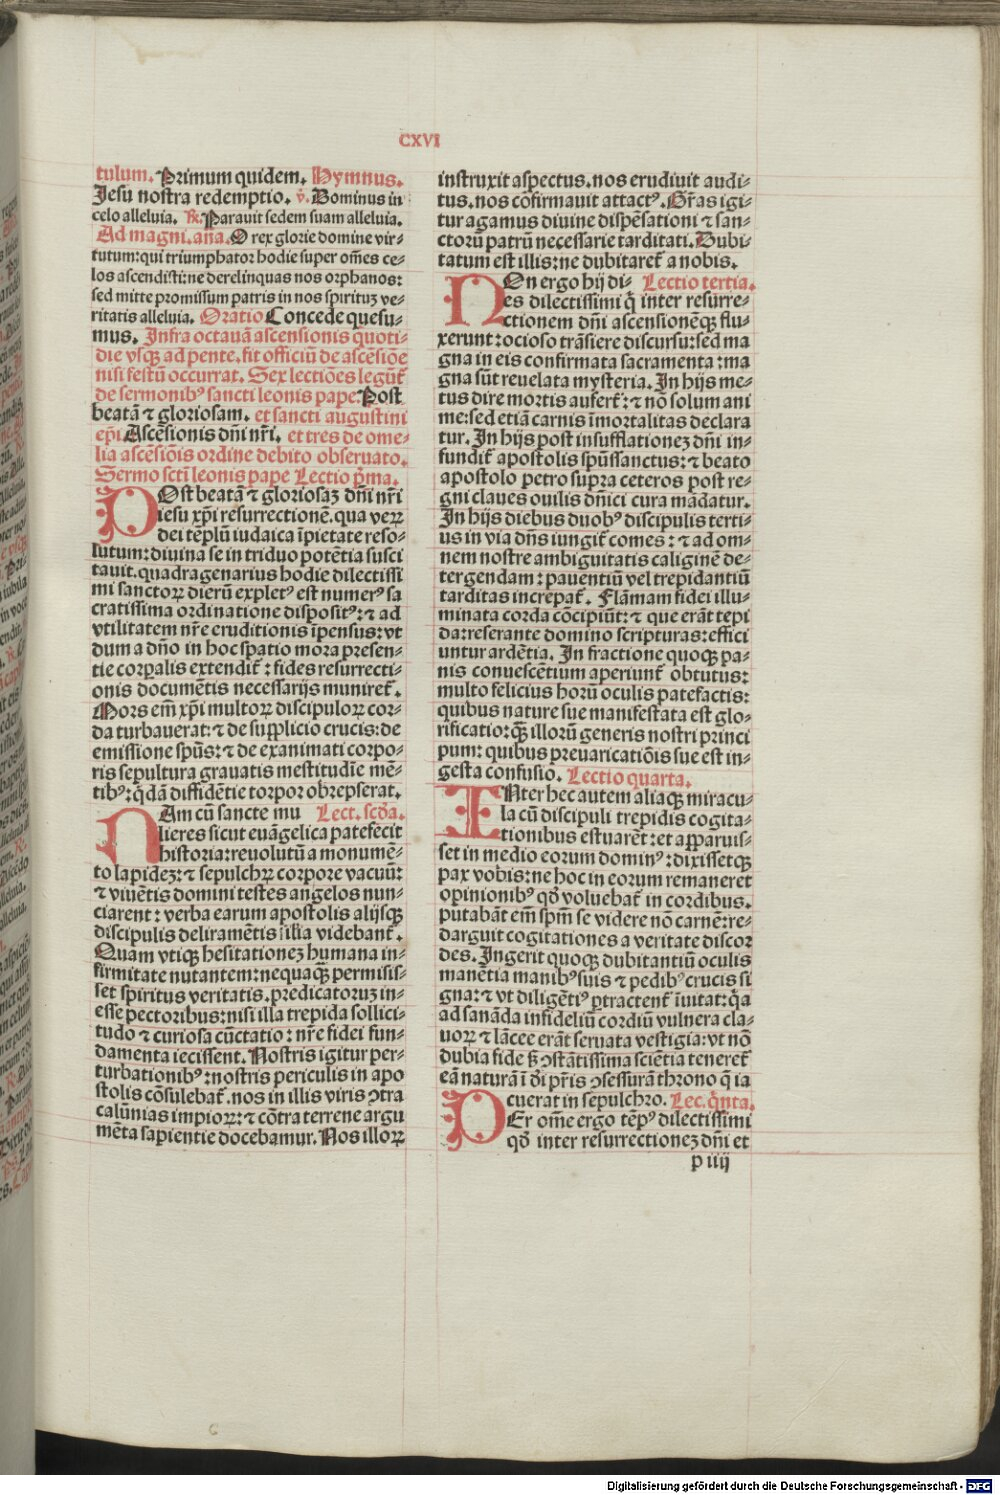 CXVI
tulum. Primum quidem. Hymnus.
Jesu nostra redemptio. ℣. Dominus in
celo alleluia. ℟. Parauit sedem suam alleluia.
Ad magni. ana. O rex glorie domine vir⸗
tutum: qui triumphator hodie super om̃es ce⸗
los ascendisti: ne derelinquas nos orphanos:
sed mitte promissum patris in nos spirituʒ ve⸗
ritatis alleluia. Oratio Concede quesu⸗
mus. Infra octauā ascensionis quoti⸗
die vsqꝫ ad pente. fit officiū de ascēsiōe
nisi festū occurrat. Sex lectiōes legūt̄
de sermonibꝰ sancti leonis pape: Post
beatā ⁊ gloriosam. et sancti augustini
ep̄i. Ascēsionis dn̄i nr̄i. et tres de ome⸗
lia ascēsiōis ordine debito obseruato.
Sermo sctī leonis pape Lectio p̄ma.
POst beatā ⁊ gloriosaʒ dn̄i nr̄i
iesu xp̄i resurrectionē. qua veꝝ
dei tēplū iudaica īpietate reso⸗
lutum: diuina se in triduo potētia susci
tauit. quadragenarius hodie dilectissi
mi sanctoꝝ dierū expletꝰ est numerꝰ sa
cratissima ordinatione dispositꝰ: ⁊ ad
vtilitatem nr̄e eruditionis īpensus: vt
dum a dn̄o in hoc spatio mora presen⸗
tie corꝑalis extendit̄: fides resurrecti⸗
onis documētis necessarijs muniret̄.
Mors em̄ xp̄i multoꝝ discipuloꝝ cor⸗
da turbauerat: ⁊ de supplicio crucis: de
emissione spūs: ⁊ de exanimati corpo⸗
ris sepultura grauatis mestitudīe mē⸗
tibꝰ: q̄dā diffidētie torpor obrepserat.
NAm cū sancte mu Lect. scd̄a.
lieres sicut euāgelica patefecit
historia: reuolutū a monumē⸗
to lapideʒ: ⁊ sepulchꝝ corpore vacuū:
⁊ viuētis domini testes angelos nun⸗
ciarent: verba earum apostolis alijsqꝫ
discipulis deliramētis s̄ilia videbant̄.
Quam vtiqꝫ hesitationeʒ humana in⸗
firmitate nutantem: nequaq̄ꝫ permisis⸗
set spiritus veritatis. predicatoruʒ in⸗
esse pectoribus: nisi illa trepida sollici⸗
tudo ⁊ curiosa cūctatio: nr̄e fidei fun⸗
damenta iecissent. Nostris igitur per⸗
turbationibꝰ: nostris periculis in apo
stolis cōsulebat̄. nos in illis viris ꝯtra
calūnias impioꝝ: ⁊ cōtra terrene argu
mēta sapientie docebamur. Nos illoꝝ
instruxit aspectus. nos erudiuit audi⸗
tus. nos cōfirmauit attactꝰ. Gr̄as igi⸗
tur agamus diuine dispēsationi ⁊ san⸗
ctorū patrū necessarie tarditati. Dubi⸗
tatum est illis: ne dubitaret̄ a nobis.
NOn ergo hij di⸗ Lectio tertia.
es dilectissimi q̄ inter resurre⸗
ctionem dn̄i ascensionēqꝫ flu⸗
xerunt: ocioso trāsiere discursu: sed ma
gna in eis confirmata sacramenta: ma
gna sūt reuelata mysteria. In hijs me⸗
tus dire mortis aufert̄: ⁊ nō solum ani
me: sed etiā carnis īmortalitas declara
tur. In hijs post insufflationeʒ dn̄i in⸗
fundit̄ apostolis spūssanctus: ⁊ beato
apostolo petro supra ceteros post re⸗
gni claues ouilis dn̄ici cura mādatur.
In hijs diebus duobꝰ discipulis terti⸗
us in via dn̄s iungit̄ comes: ⁊ ad om⸗
nem nostre ambiguitatis caliginē de⸗
tergendam: pauentiū vel trepidantiū
tarditas increpat̄. Flāmam fidei illu⸗
minata corda cōcipiūt: ⁊ que erāt tepi
da: reserante domino scripturas: effici
untur ardētia. In fractione quoqꝫ pa⸗
nis conuescētium aperiunt̄ obtutus:
multo felicius horū oculis patefactis:
quibus nature sue manifestata est glo⸗
rificatio: q̄ꝫ illorū generis nostri princi
pum: quibus preuaricatiōis sue est in⸗
gesta confusio. Lectio quarta.
INter hec autem aliaqꝫ miracu⸗
la cū discipuli trepidis cogita⸗
tionibus estuarēt: et apparuis⸗
set in medio eorum dominꝰ: dixissetqꝫ
pax vobis: ne hoc in eorum remaneret
opinionibꝰ qd̄ voluebat̄ in cordibus.
putabāt em̄ spm̄ se videre nō carnē: re⸗
darguit cogitationes a veritate discor
des. Ingerit quoqꝫ dubitantiū oculis
manētia manibꝰ suis ⁊ pedibꝰ crucis si
gna: ⁊ vt diligētiꝰ ꝑtractent̄ īuitat: q̄a
ad sanāda infideliū cordiū vulnera cla⸗
uoꝝ ⁊ lācee erāt seruata vestigia: vt nō
dubia fide s̄ꝫ ꝯstātissima sciētia teneret̄
eā naturā ī dei pr̄is ꝯsessurā throno q̄ ia
cuerat in sepulchro. Lec. q̄nta.
PEr om̄e ergo tēpꝰ dilectissimi
qd̄ inter resurrectioneʒ dn̄i et
p iiij
Digitalisierung gefördert durch die Deutsche Forschungsgemeinschaft - DFG